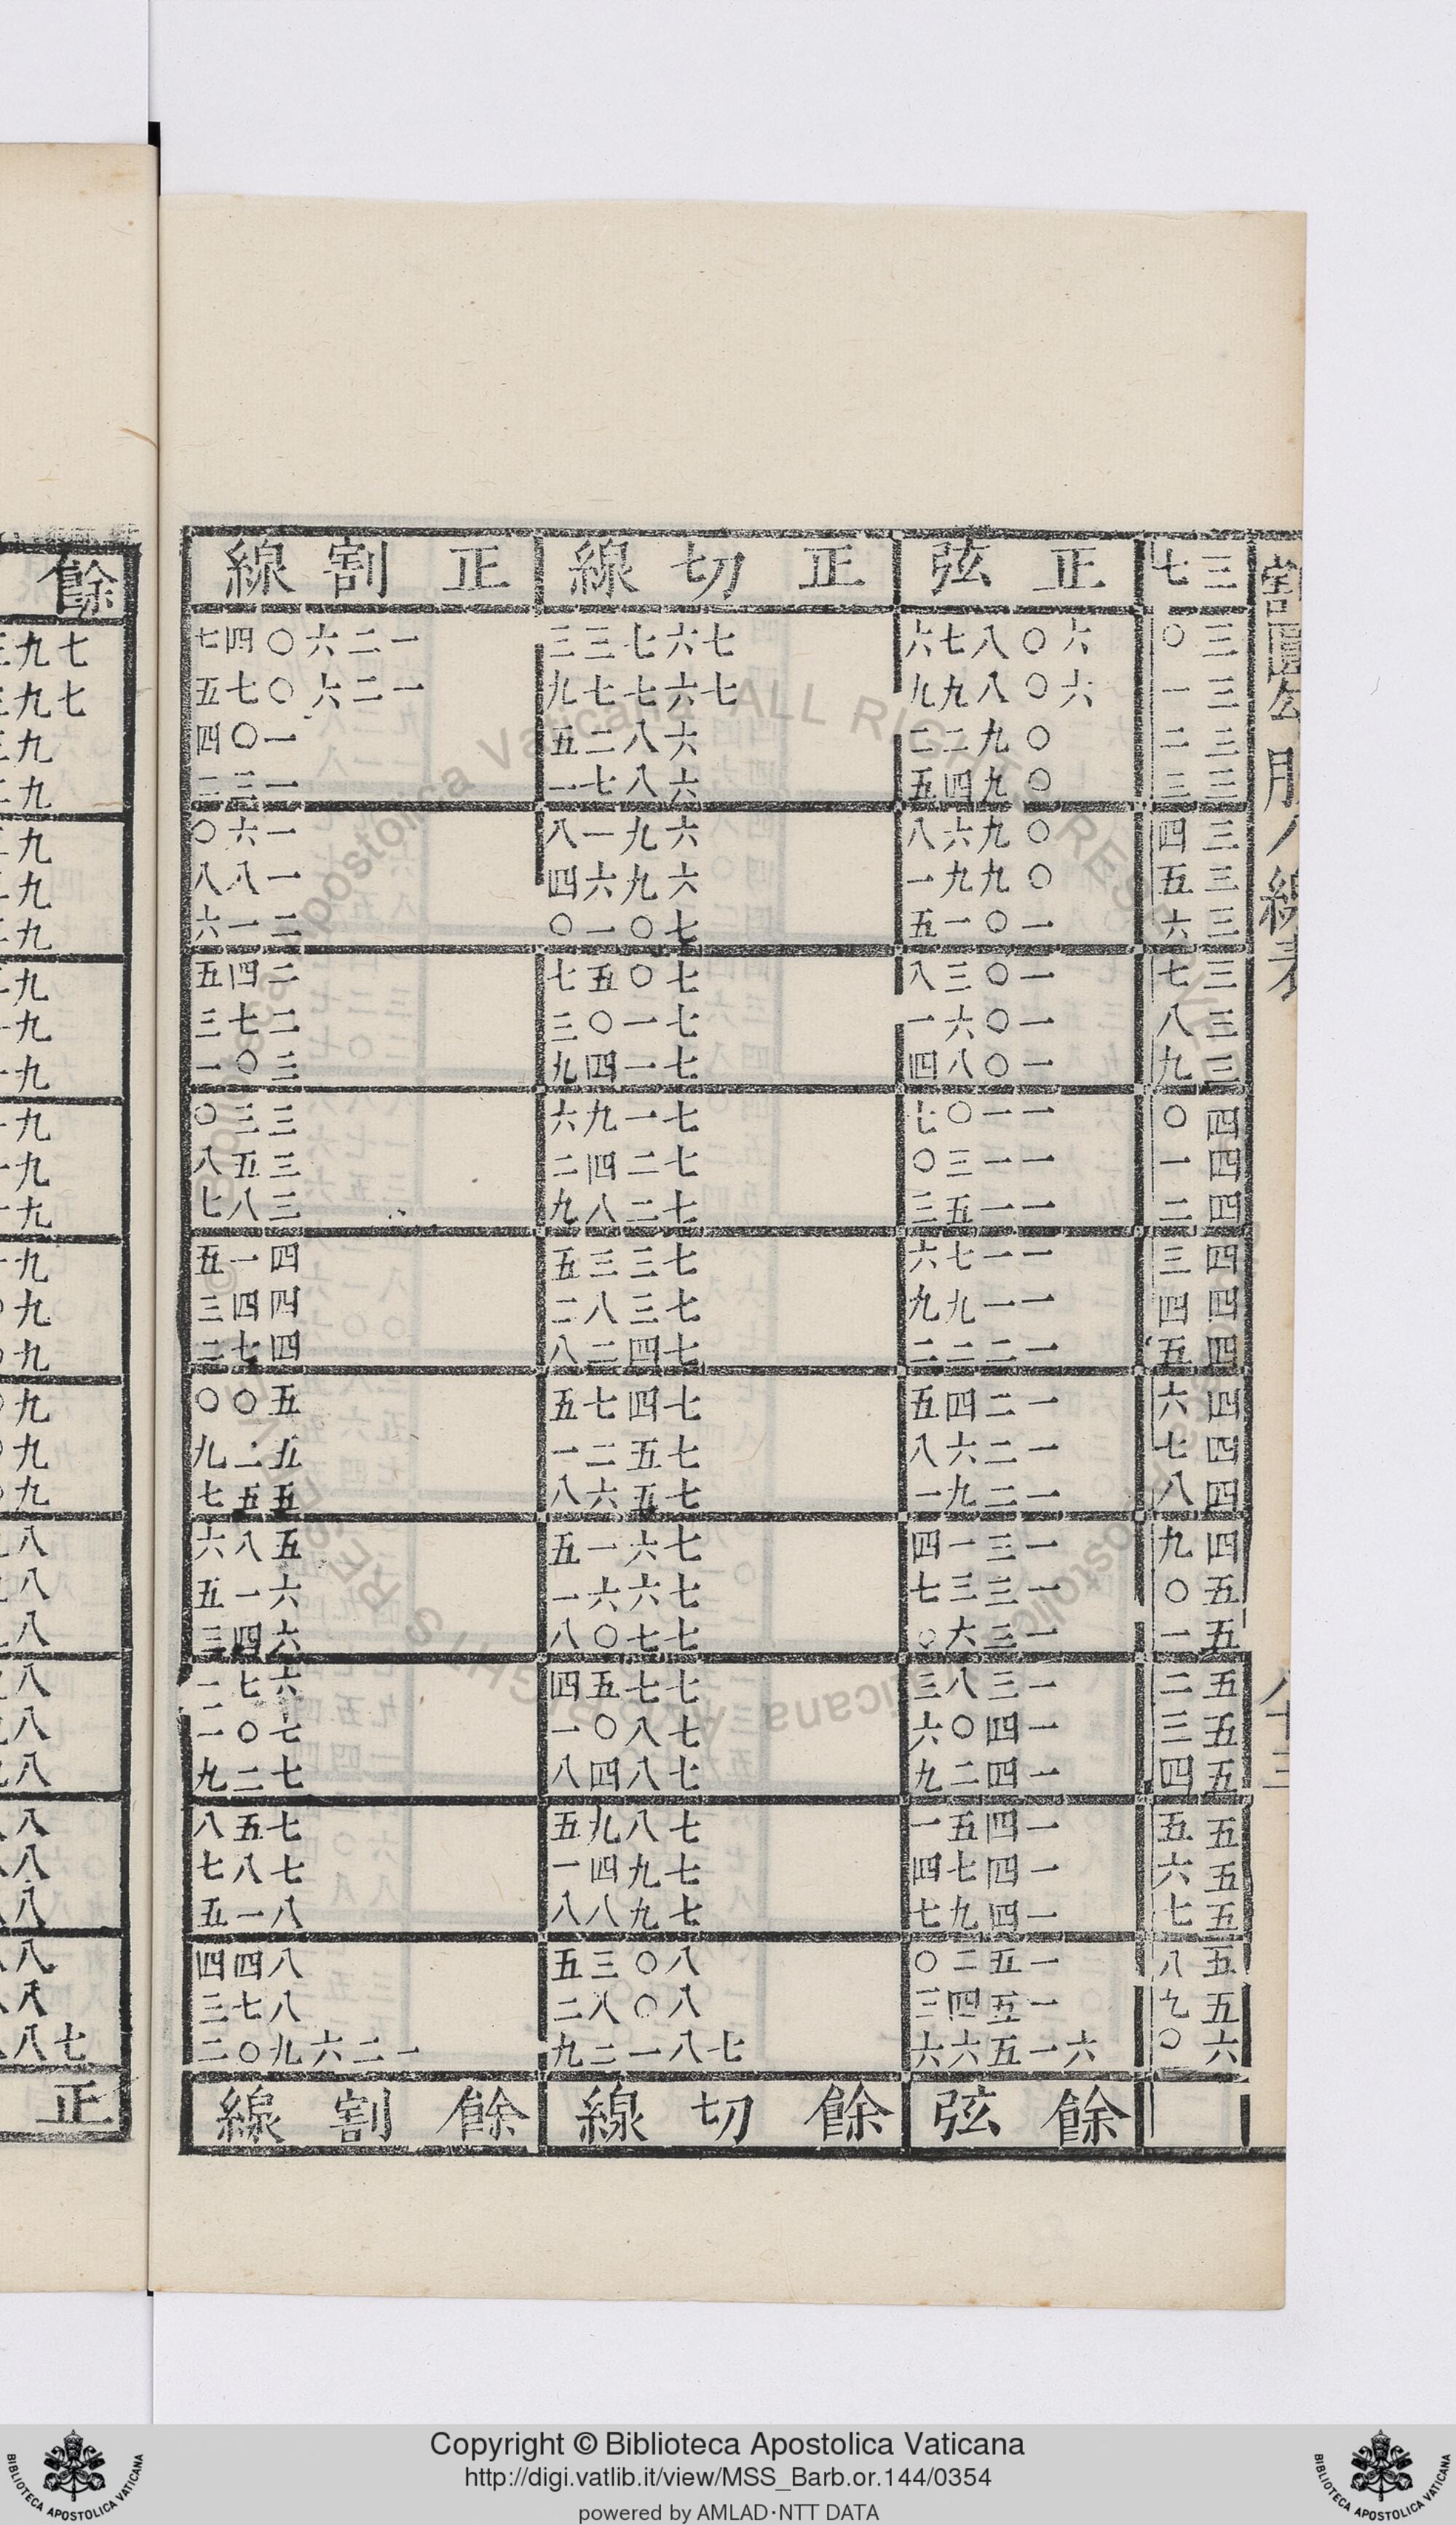 三七 正弦 正切線 正割線
三〇 六〇八七六 七六七三三 一二六〇四七
三一 六〇八九九 七六七七九 一二六〇七五
三二 〇九二二 六八二五 一〇四
三三 〇九四五 六八七一 一三二
三四 〇九六八 六九一八 一六〇
三五 〇九九一 六九六四 一八八
三六 一〇一五 七〇一〇 二一六
三七 一〇三八 七〇五七 二四五
三八 一〇六一 七一〇三 二七三
三九 一〇八四 七一四九 三〇一
四〇 一一〇七 七一九六 三三〇
四一 一一三〇 七二四二 三五八
四二 一一五三 七二八九 三八七
四三 一一七六 七三三五 四一五
四四 一一九九 七三八二 四四三
四五 一二二二 七四二八 四七二
四六 一二四五 七四七五 五〇〇
四七 一二六八 七五二一 五二九
四八 一二九一 七五六八 五五七
四九 一三一四 七六一五 五八六
五〇 一三三七 七六六一 六一五
五一 一三六〇 七七〇八 六四三
五二 一三八三 七七五四 六七二
五三 一四〇六 七八〇一 七〇一
五四 一四二九 七八四八 七二九
五五 一四五一 七八九五 七五八
五六 一四七四 七九四一 七八七
五七 一四九七 七九八八 八一五
五八 一五二〇 八〇三五 八四四
五九 一五四三 八〇八二 八七三
六〇 六一五六六 七八一二九 一二六九〇二
餘弦 餘切線 餘割線
Copyright © Biblioteca Apostolica Vaticana
http://digi.vatlib.it/view/MSS_Barb.or.144/0354
powered by AMLAD·NTT DATA